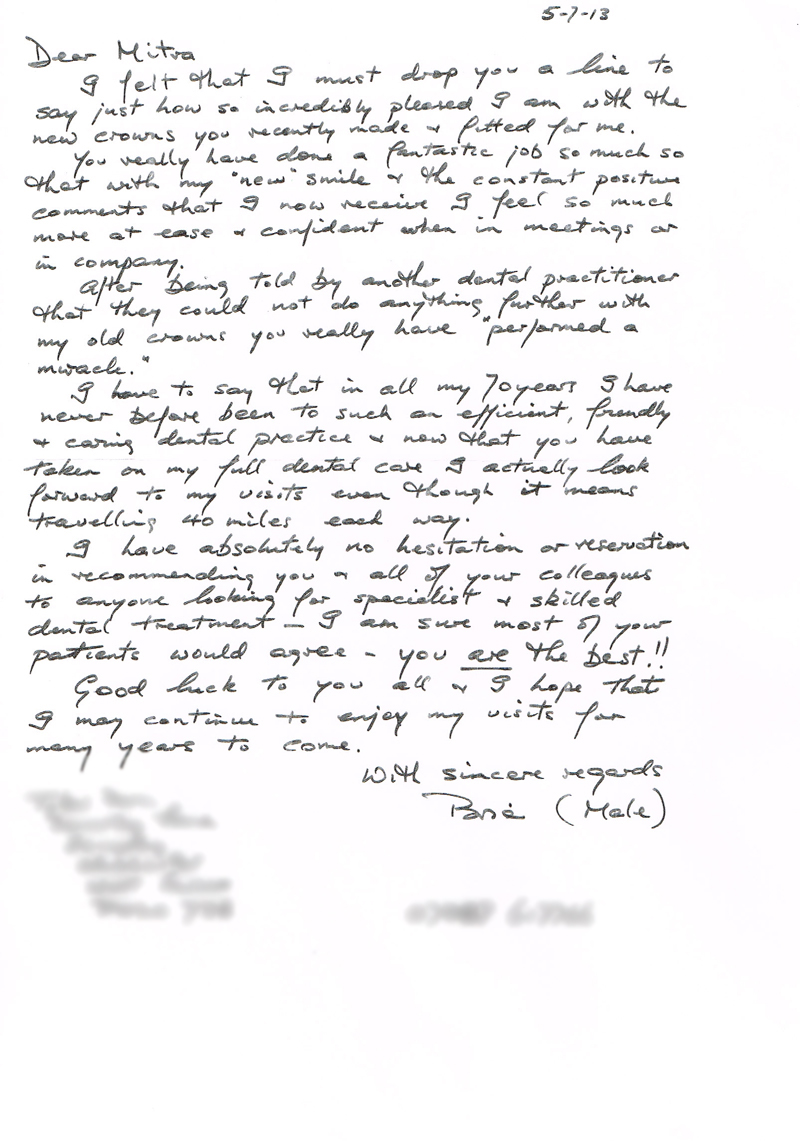 5-7-13
Dear Mitra
I felt that I must drop you a line to
say just how so incredibly pleased I am with the
new crowns you recently made & fitted for me.
You really have done a fantastic job so much so
that with my "new" smile & the constant positive
comments that I now receive I feel so much
more at ease & confident when in meetings or
in company.
After being told by another dental practitioner
that they could not do anything further with
my old crowns you really have "performed a
miracle."
I have to say that in all my 70 years I have
never before been to such an efficient, friendly
& caring dental practice & now that you have
taken on my full dental care I actually look
forward to my visits even though it means
travelling 40 miles each way.
I have absolutely no hesitation or reservation
in recommending you & all of your colleagues
to anyone looking for specialist & skilled
dental treatment - I am sure most of your
patients would agree - you are the best!!
Good luck to you all & I hope that
I may continue to enjoy my visits for
many years to come.
With sincere regards
(Male)